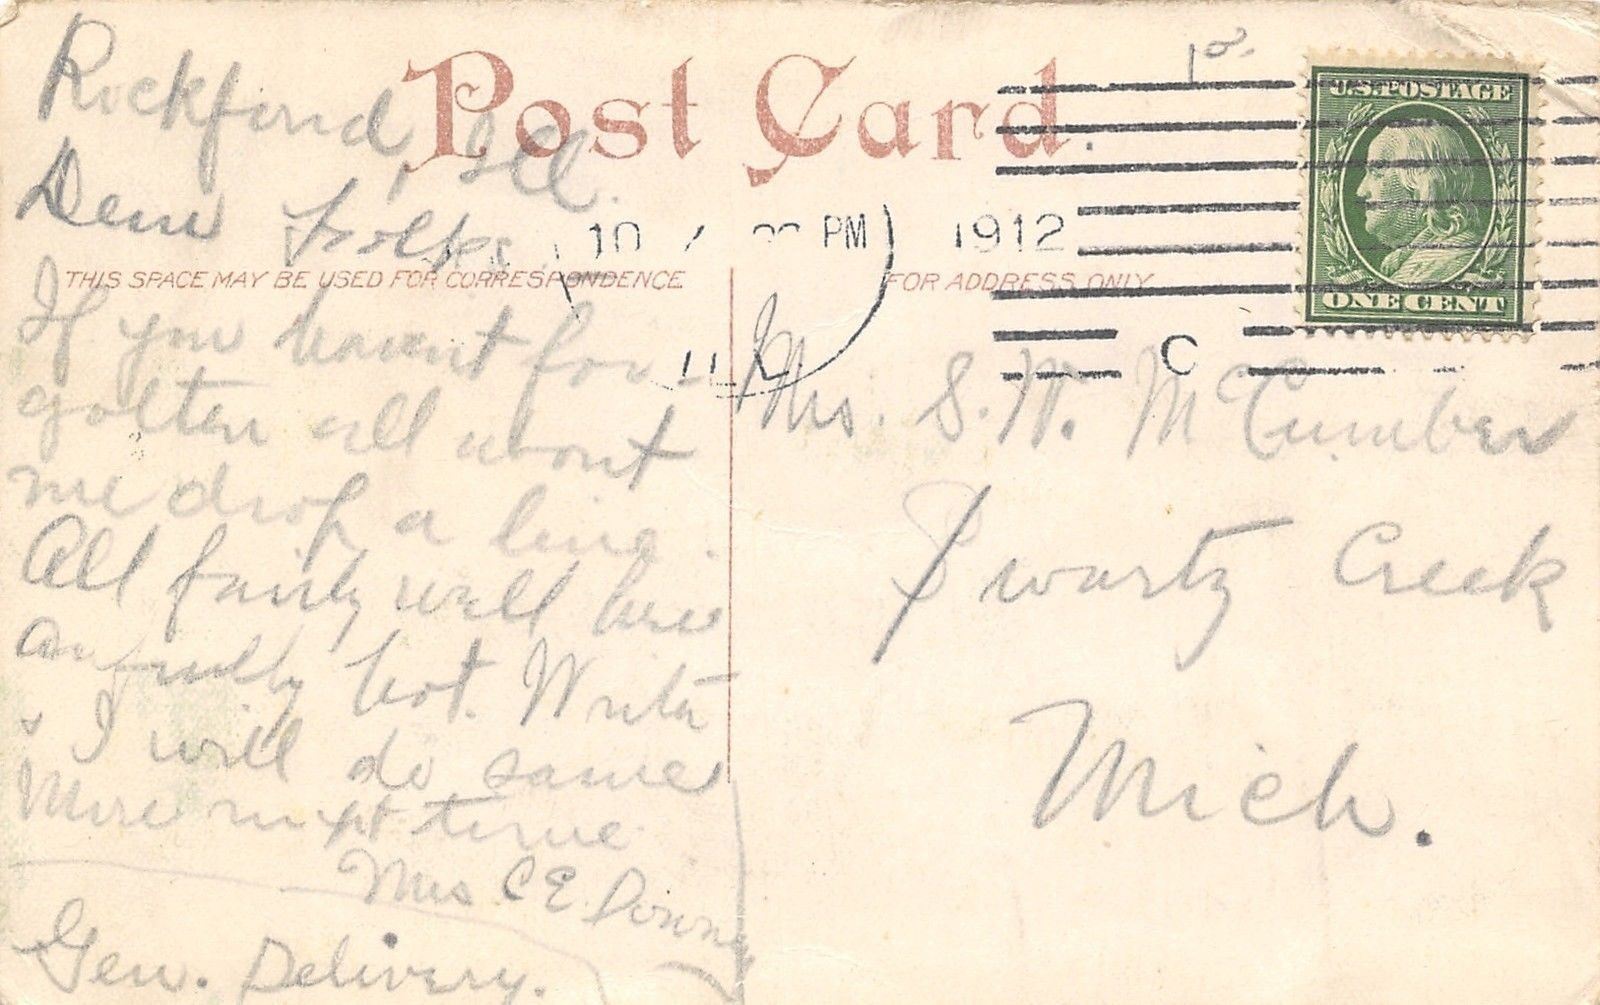 Post Card.
Rockford, Ill.
Dear Folks
THIS SPACE MAY BE USED FOR CORRESPONDENCE
If you havent for-
gotten all about
me drop a line.
All fairly well here
awfully hot. Write
& I will do same
More next time
Mrs C E. Downey
Gen. Delivery.
10 PM 1912
ILL.
C
U.S. POSTAGE
ONE CENT
FOR ADDRESS ONLY
Mrs. S. W. McCumber
Swartz Creek
Mich.